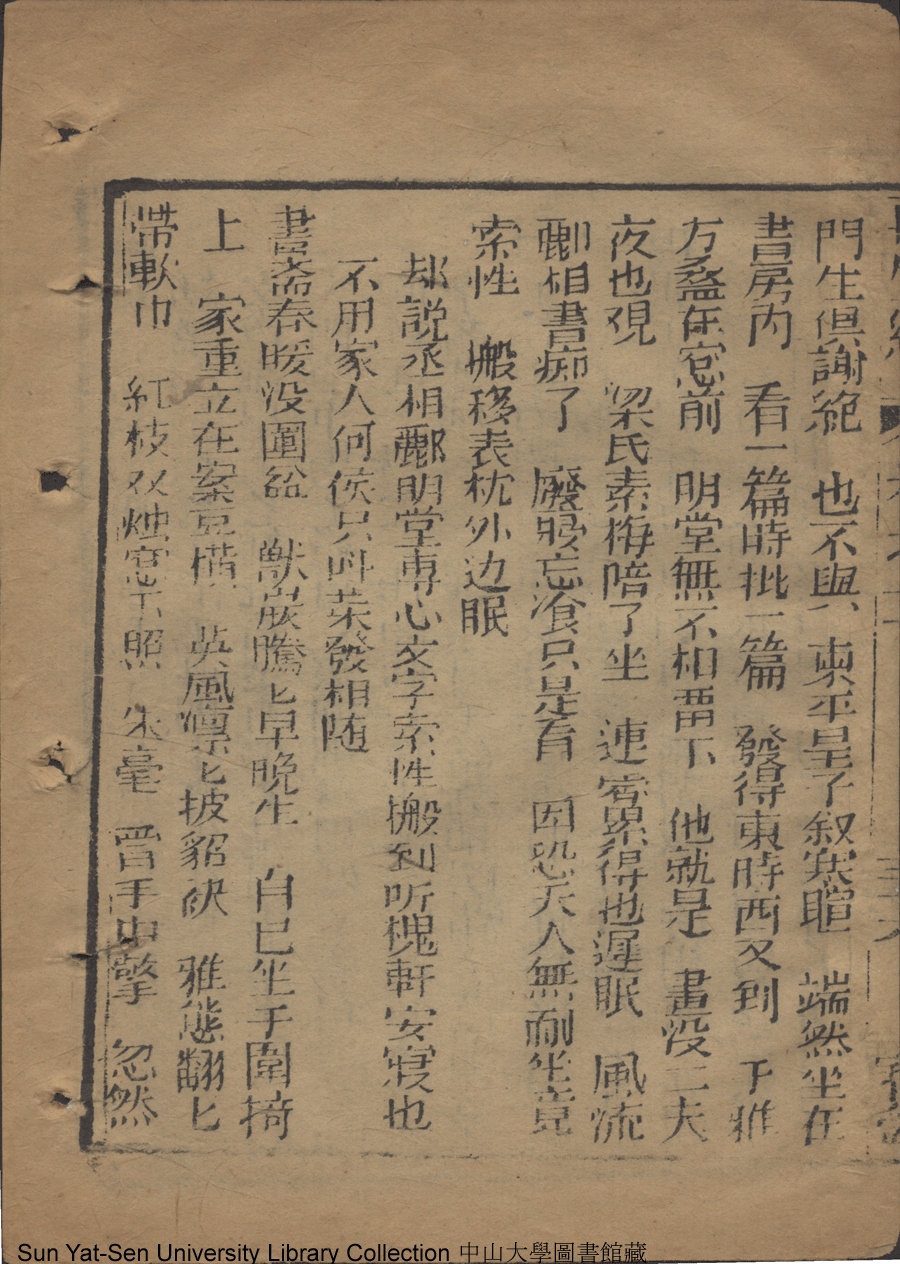 門生俱謝絕 也不與 東平王子叙寒暄 端然坐在
書房內 看一篇時批一篇 發得東時西又到 下雅
方盔在窓前 明堂無不相畱下 他就是 晝没工夫
夜也覌 梁氏素梅陪了坐 連宵累得也遲眠 風流
酈相書痴了 廢寢忘飡只是看 因恐夫人無耐坐竟
索性 搬移衾枕外边眠
却説丞相酈明堂専心文字索性搬到听槐軒安寢也
不用家人伺侯只呌荣發相随
書斎春暖没圍盆 獸炭騰匕早晚生 自巳坐手圍掎
上 家重立在案豆横 英風凛匕披貂𧙍 雅態翻匕
帶軟巾 紅枝双烛窓下照 朱毫 晋手中擎 忽然
Sun Yat-Sen University Library Collection 中山大學圖書館藏